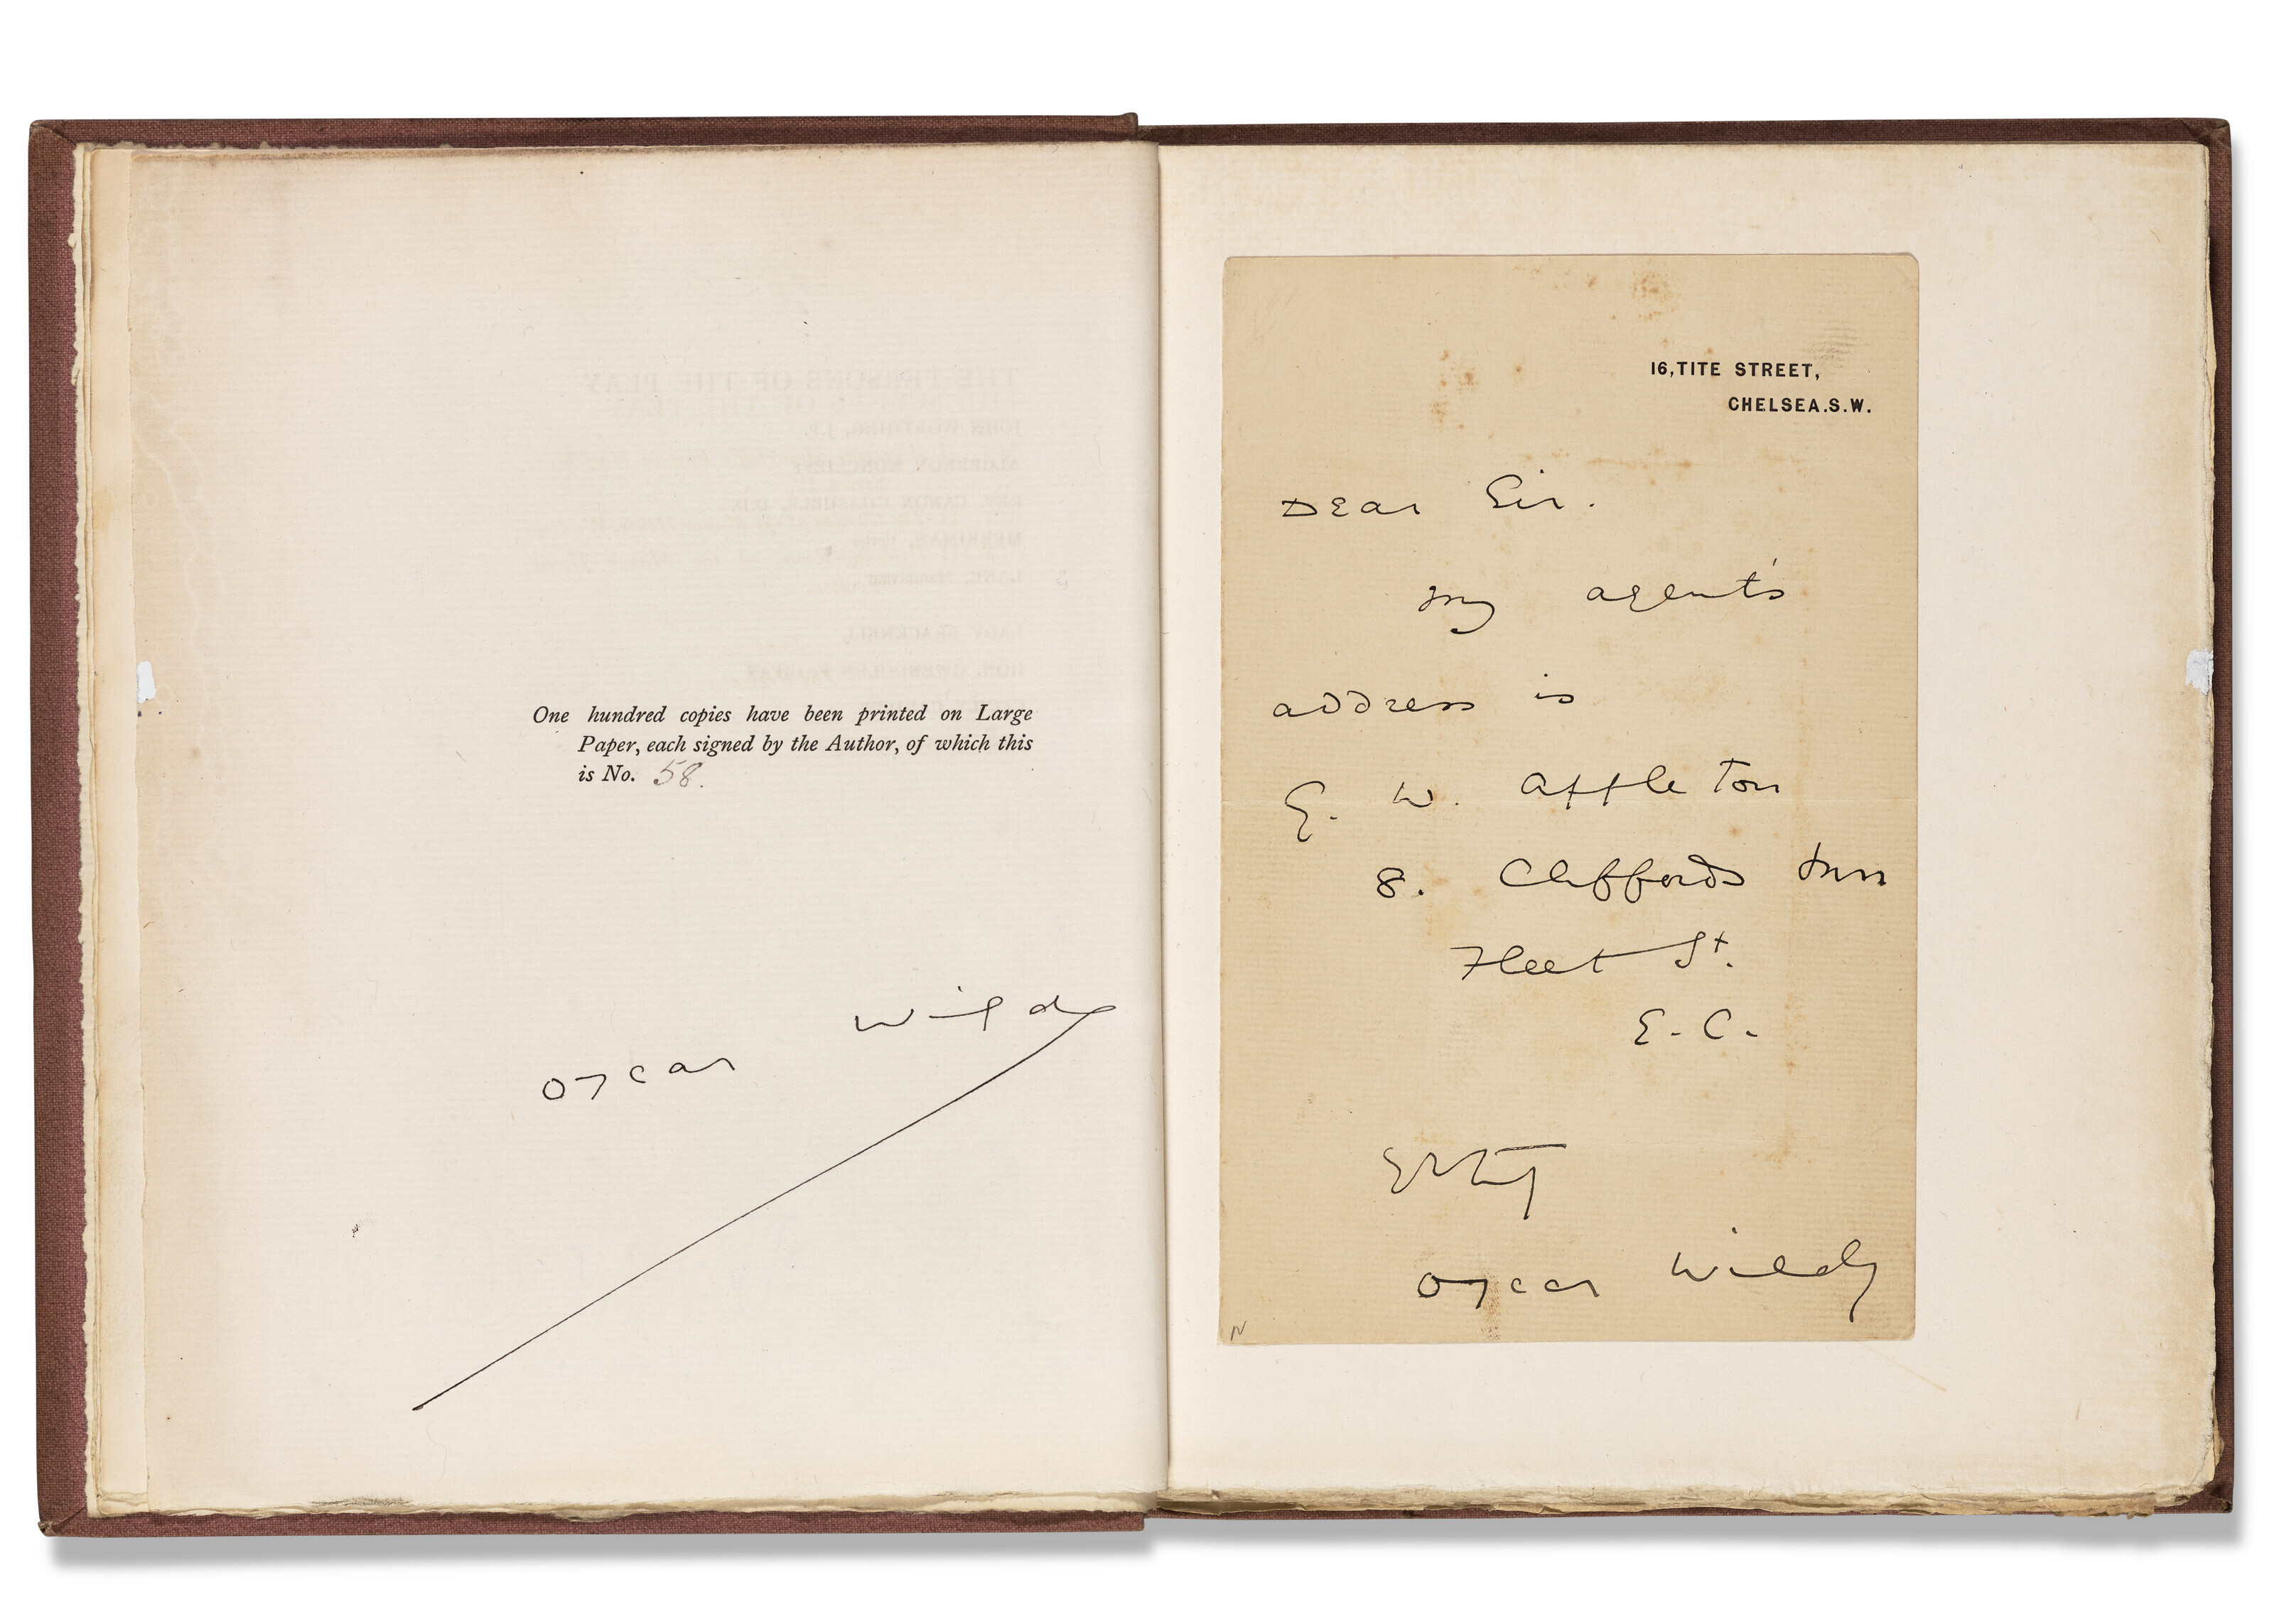 One hundred copies have been printed on Large
Paper, each signed by the Author, of which this
is No. 58.
Oscar Wilde
16, TITE STREET,
CHELSEA. S.W.
Dear Sir.
my agent's
address is
E. W. Appleton
8. Cliffords Inn
Fleet St.
E. C.
Oscar Wilde